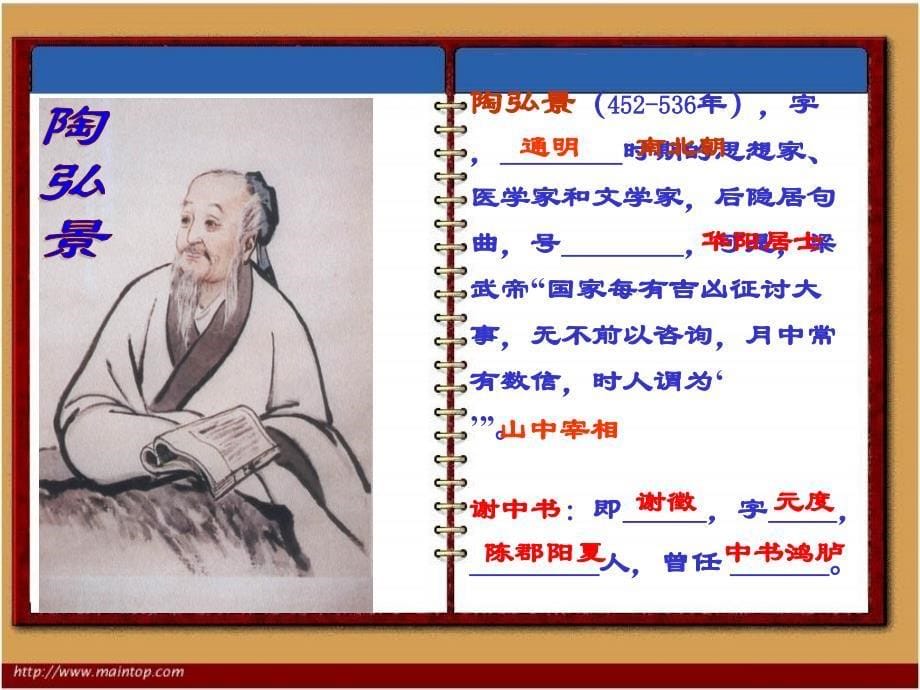 陶弘景
陶弘景（452-536年），字
，通明________时期的思想家、南北朝
医学家和文学家，后隐居句
曲，号________，可见，梁华阳居士
武帝“国家每有吉凶征讨大
事，无不前以咨询，月中常
有数信，时人谓为‘
’”。山中宰相
谢中书：即谢徵，字元度，
陈郡阳夏人，曾任中书鸿胪。
http://www.maintop.com